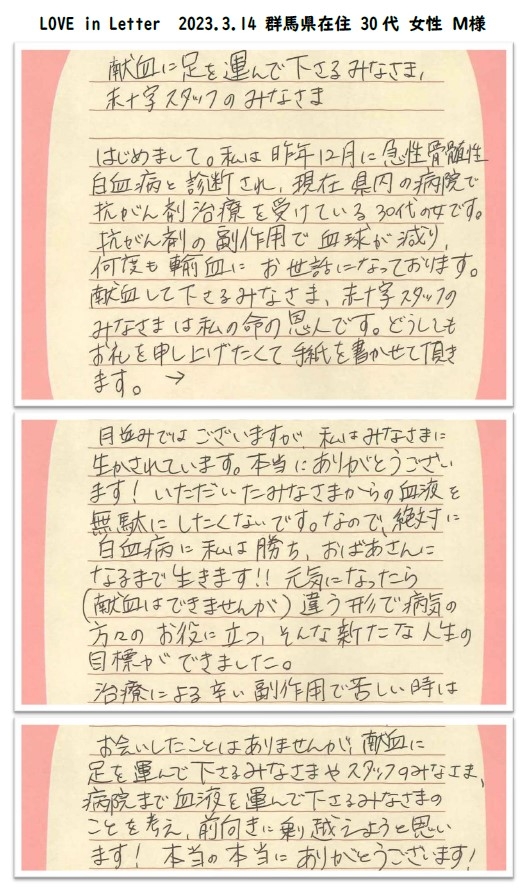 LOVE in Letter 2023.3.14 群馬県在住 30代 女性 M様
献血に足を運んで下さるみなさま、
赤十字スタッフのみなさま
はじめまして。私は昨年12月に急性骨髄性
白血病と診断され、現在県内の病院で
抗がん剤治療を受けている30代の女です。
抗がん剤の副作用で血球が減り、
何度も輸血にお世話になっております。
献血して下さるみなさま、赤十字スタッフの
みなさまは私の命の恩人です。どうしても
お礼を申し上げたくて手紙を書かせて頂き
ます。→
月並みではございますが、私はみなさまに
生かされています。本当にありがとうござい
ます！いただいたみなさまからの血液を
無駄にしたくないです。なので、絶対に
白血病に私は勝ち、おばあさんに
なるまで生きます!!元気になったら
(献血はできませんが)違う形で病気の
方々のお役に立つ、そんな新たな人生の
目標ができました。
治療による辛い副作用で苦しい時は
お会いしたことはありませんが、献血に
足を運んで下さるみなさまやスタッフのみなさま、
病院まで血液を運んで下さるみなさまの
ことを考え、前向きに乗り越えようと思い
ます！本当の本当にありがとうございます！